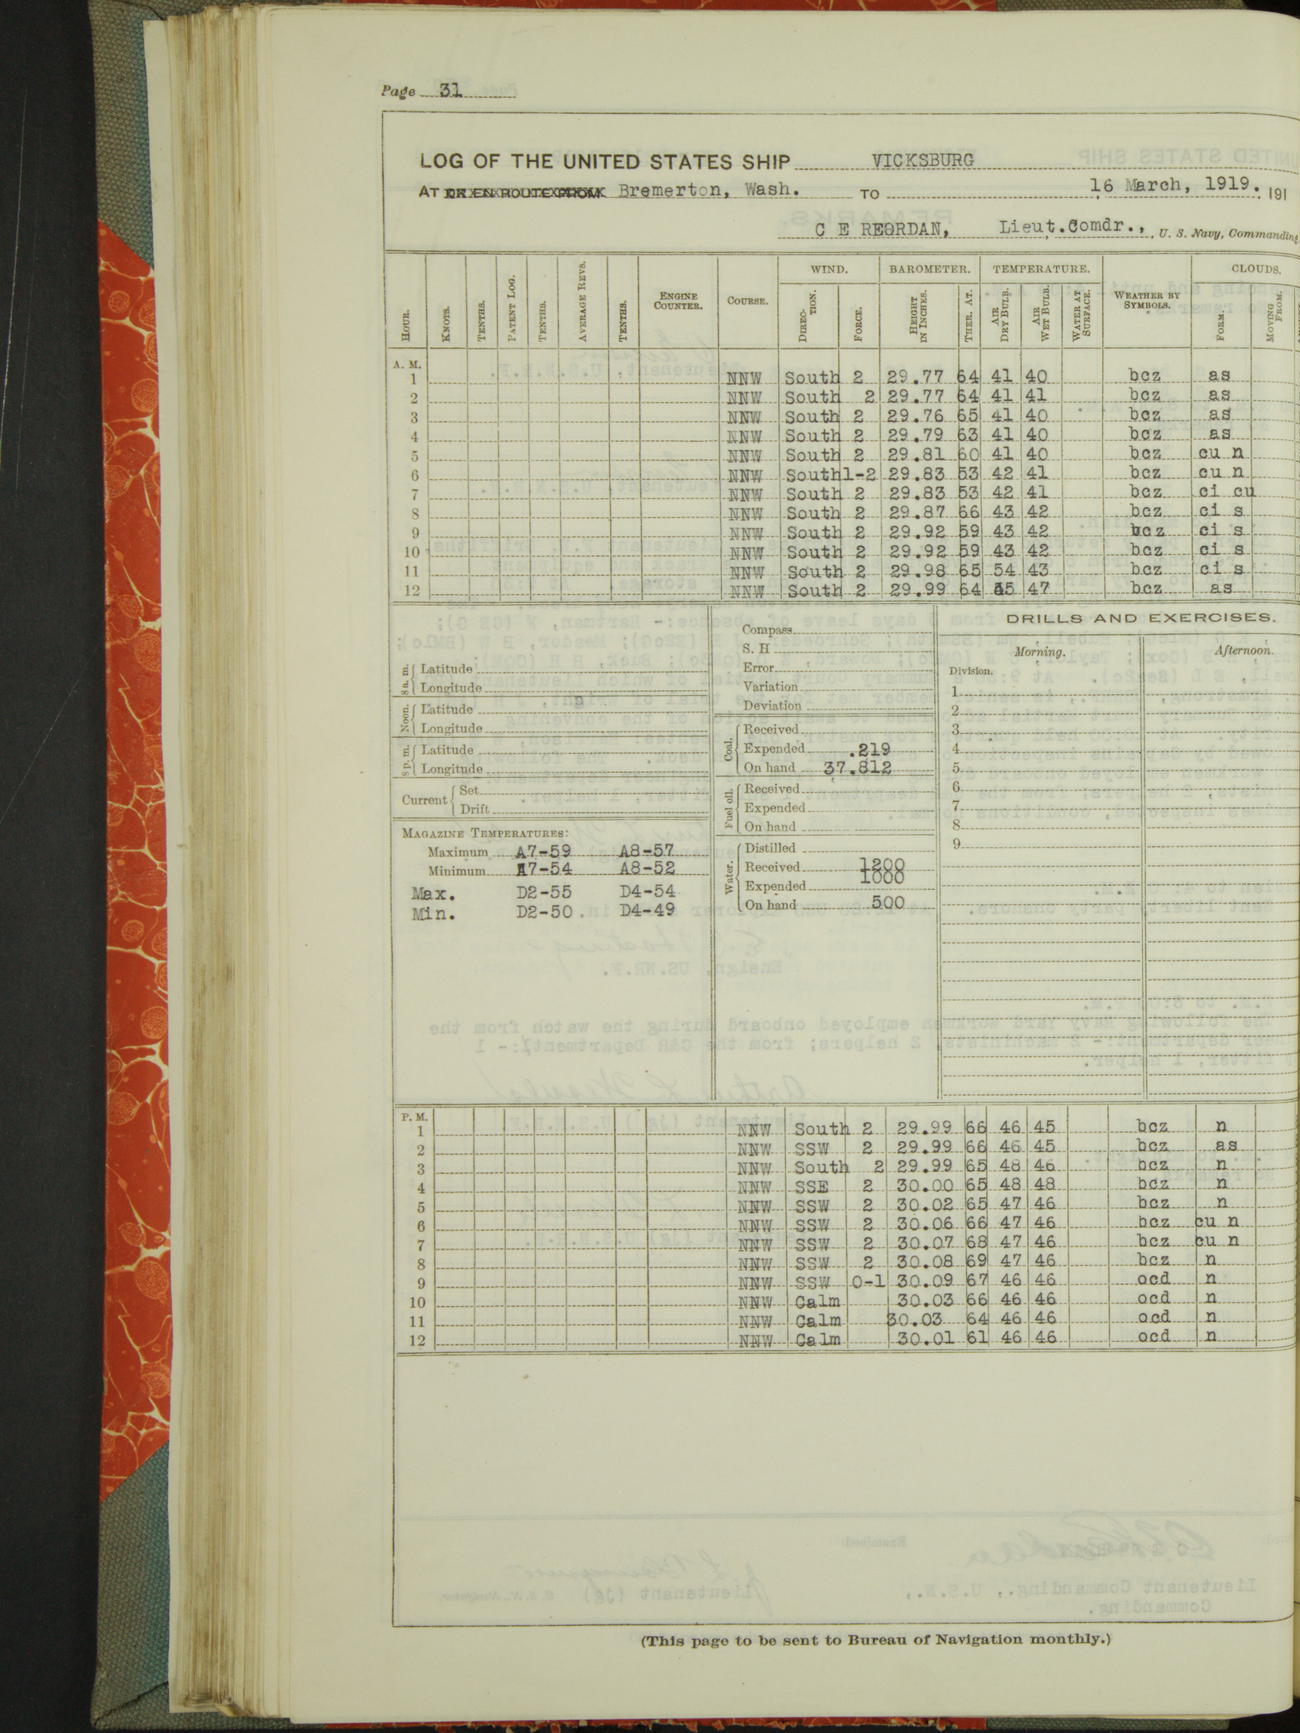 Page 31
LOG OF THE UNITED STATES SHIP VICKSBURG
AT OR EN ROUTE FROM Bremerton, Wash. TO 16 March, 1919. 191
C E REORDAN, Lieut.Comdr., U. S. Navy, Commanding
WIND. BAROMETER. TEMPERATURE. CLOUDS.
HOUR. KNOTS. TENTHS. PATENT LOG. TENTHS. AVERAGE REVS. TENTHS. ENGINE COUNTER. COURSE. DIRECTION. FORCE. HEIGHT IN INCHES. THER. AT. AIR DRY BULB. AIR WET BULB. WATER AT SURFACE. WEATHER BY SYMBOLS. FORM. MOVING FROM.
A. M.
1 NNW South 2 29.77 64 41 40 bcz as
2 NNW South 2 29.77 64 41 41 bcz as
3 NNW South 2 29.76 65 41 40 bcz as
4 NNW South 2 29.79 63 41 40 bcz as
5 NNW South 2 29.81 60 41 40 bcz cu n
6 NNW South1-2 29.83 53 42 41 bcz cu n
7 NNW South 2 29.83 53 42 41 bcz ci cu
8 NNW South 2 29.87 66 43 42 bcz ci s
9 NNW South 2 29.92 59 43 42 bcz ci s
10 NNW South 2 29.92 59 43 42 bcz ci s
11 NNW South 2 29.98 65 54 43 bcz ci s
12 NNW South 2 29.99 64 47 bcz as
8 a. m. Latitude
Longitude
Noon. Latitude
Longitude
8 p. m. Latitude
Longitude
Current Set
Drift
MAGAZINE TEMPERATURES:
Maximum A7-59 A8-57
Minimum A7-54 A8-52
Max. D2-55 D4-54
Min. D2-50 D4-49
Compass
S. H
Error
Variation
Deviation
Coal. Received
Expended .219
On hand 37.812
Fuel oil. Received
Expended
On hand
Water. Distilled
Received 1200
Expended 1000
On hand 500
DRILLS AND EXERCISES.
Morning. Afternoon.
Division.
1
2
3
4
5
6
7
8
9
P. M.
1 NNW South 2 29.99 66 46 45 bcz n
2 NNW SSW 2 29.99 66 46 45 bcz as
3 NNW South 2 29.99 65 48 46 bcz n
4 NNW SSE 2 30.00 65 48 48 bcz n
5 NNW SSW 2 30.02 65 47 46 bcz n
6 NNW SSW 2 30.06 66 47 46 bcz cu n
7 NNW SSW 2 30.07 68 47 46 bcz cu n
8 NNW SSW 2 30.08 69 47 46 bcz n
9 NNW SSW 0-1 30.09 67 46 46 ocd n
10 NNW Calm 30.03 66 46 46 ocd n
11 NNW Calm 30.03 64 46 46 ocd n
12 NNW Calm 30.01 61 46 46 ocd n
(This page to be sent to Bureau of Navigation monthly.)